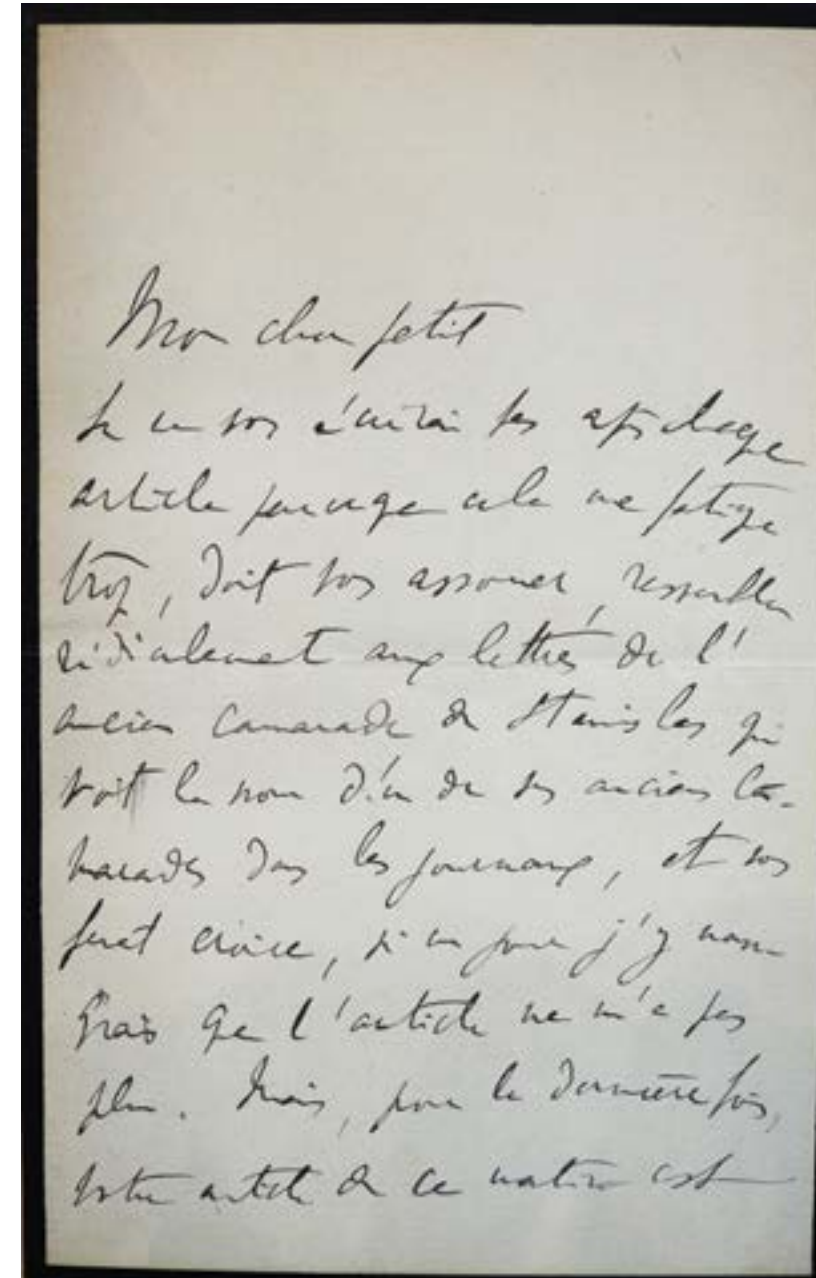 Mon cher petit
Je ne vous écrirai pas après chaque
article parce que cela me fatigue
trop, doit vous assommer, ressembler
ridiculement aux lettres de l'
ancien camarade de Stanislas qui
voit le nom d'un de ses anciens ca-
marades dans les journaux, et vous
ferait croire, si un jour j'y man-
quais que l'article ne m'a pas
plu. Mais, pour la dernière fois,
votre article de ce matin est